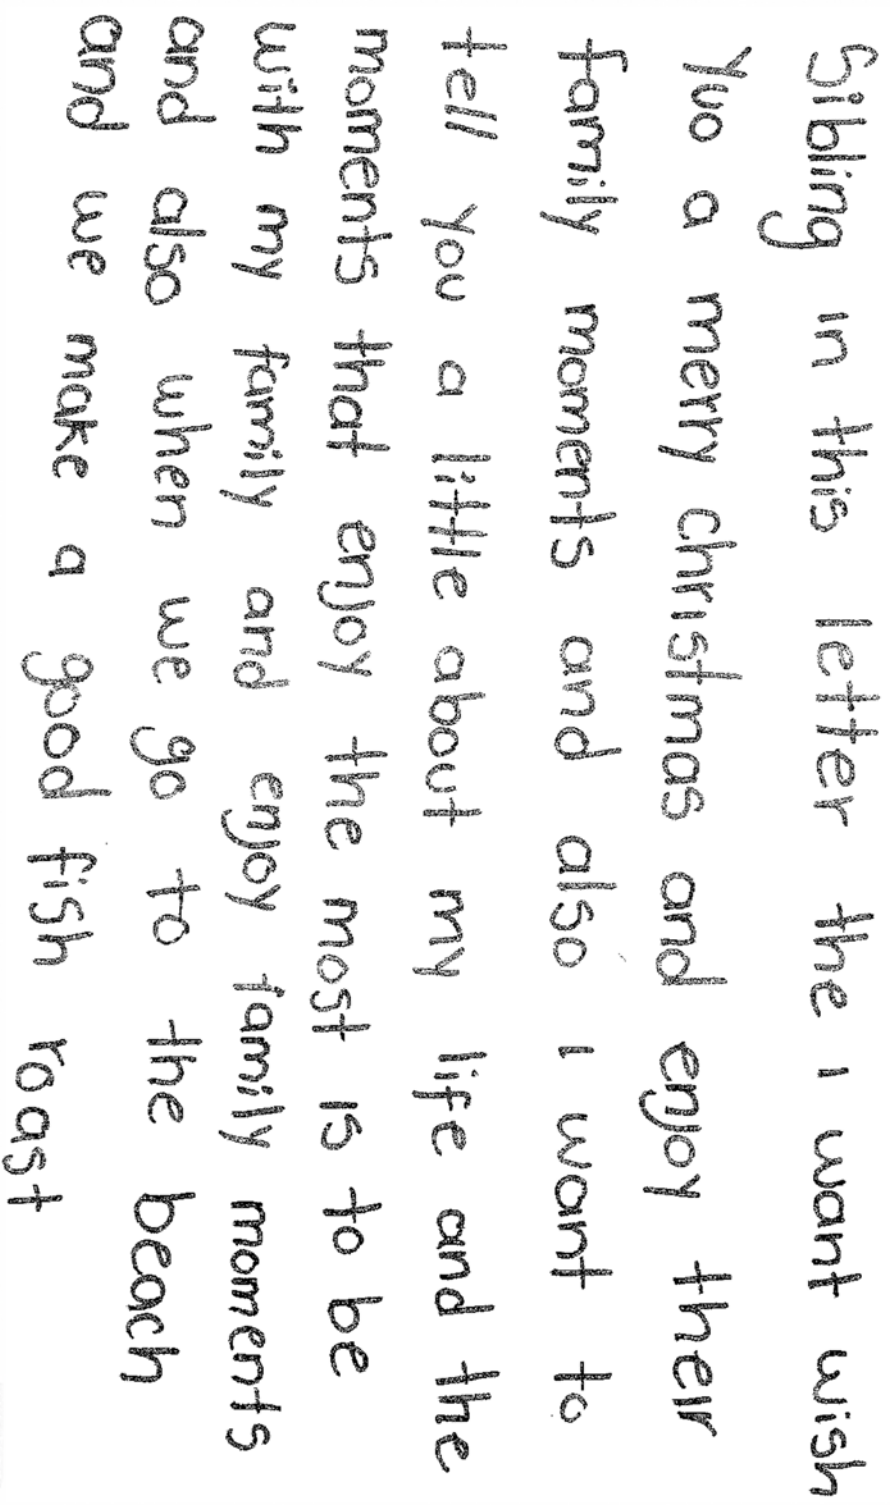 Sibling in this letter the I want wish
Yuo a merry christmas and enjoy their
family moments and also I want to
tell you a little about my life and the
moments that enjoy the most is to be
with my family and enjoy family moments
and also when we go to the beach
and we make a good fish roast